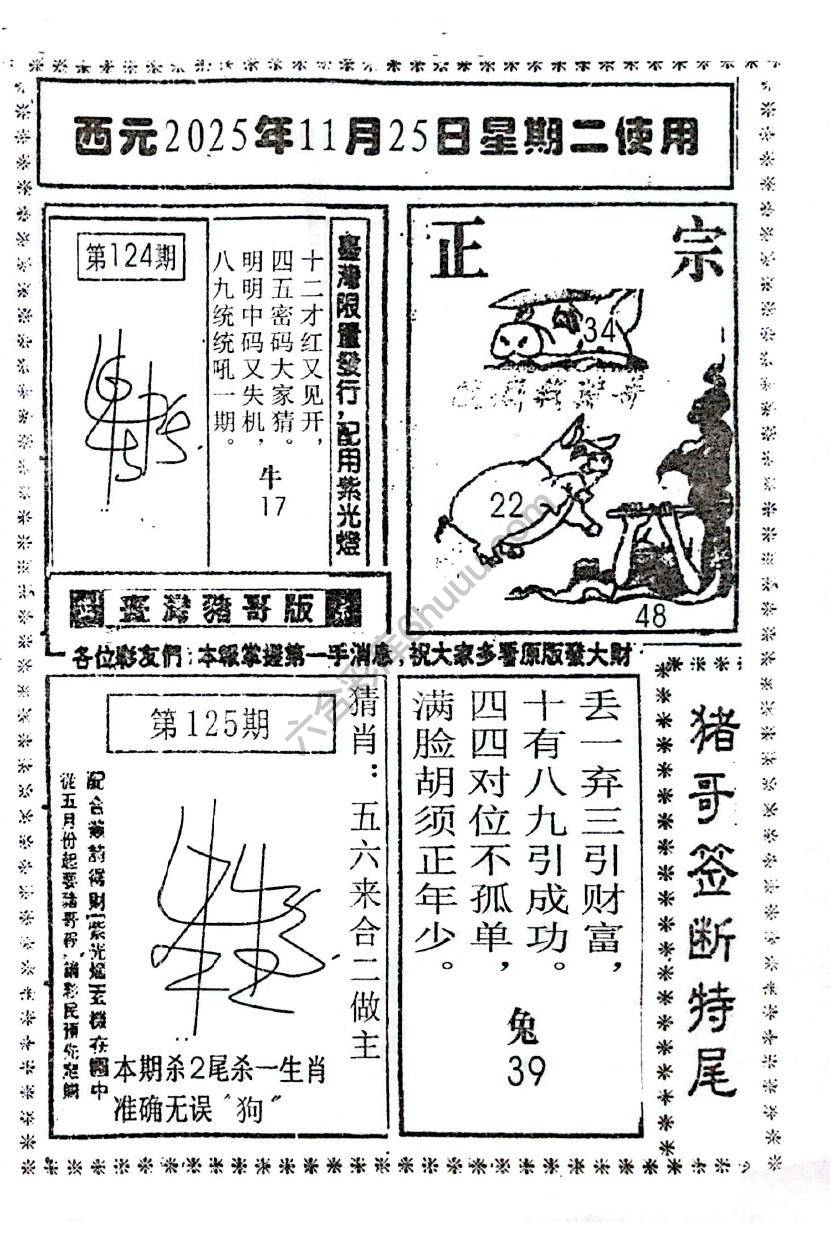 西元2025年11月25日星期二使用
第124期
十二才红又见开，
四五密码大家猜。
明明中码又失机，
八九统统吼一期。
牛
17
臺灣限量發行，配用紫光燈
正宗
34
22
48
臺灣豬哥版
各位彩友們：本報掌握第一手消息，祝大家多看原版發大財
第125期
猜肖：五六来合二做主
本期杀2尾杀一生肖
准确无误“狗”
丢一弃三引财富，
十有八九引成功。
四四对位不孤单，
满脸胡须正年少。
兔
39
猪哥签断特尾